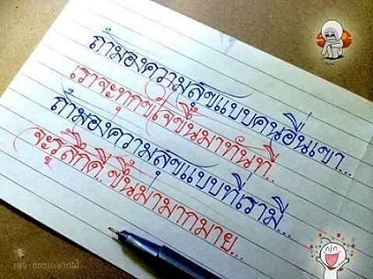 ถ้ามองความสุขแบบคนอื่นเขา..
เราจะทุกข์ใจขึ้นมาทันที..
ถ้ามองความสุขแบบที่เรามี...
จะรู้สึกดีขึ้นมามากมาย..